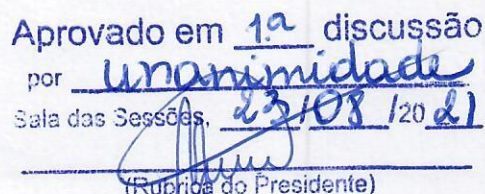 Aprovado em 1ª discussão
por unanimidade
Sala das Sessões, 23/08/2021
(Rubrica do Presidente)